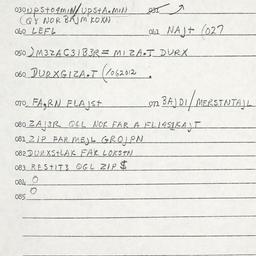 030 NPSTO4MIN/UPSTA.MIN 031
(QY NOR BAJM KOXN)
040 LEFL 041 NAJT (027
050 )M3ZAC31B3R= MIZA.T DURX
060 DURXGIZA.T (/062012
070 FA,RN FLAJST 071 BAJDI/MERSTNTAJL
080 ZAJ3R OGL NOK FAR A
081 ZIP FAR MEJL GROJPN
082 DURXSTLAK FAK LOKSTN
083 RESTITS OGL ZIP $
084 O
O
085